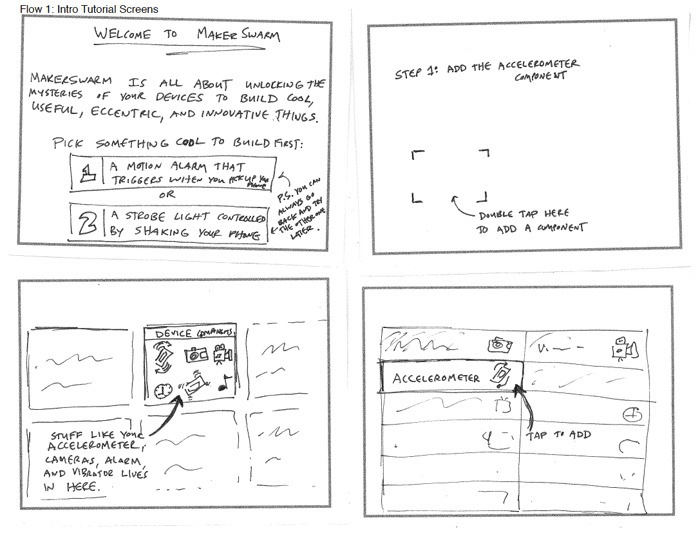 Flow 1: Intro Tutorial Screens
WELCOME TO MAKERSWARM
MAKERSWARM IS ALL ABOUT UNLOCKING THE
MYSTERIES OF YOUR DEVICES TO BUILD COOL,
USEFUL, ECCENTRIC, AND INNOVATIVE THINGS.
PICK SOMETHING COOL TO BUILD FIRST:
1 A MOTION ALARM THAT
TRIGGERS WHEN YOU PICK UP YOUR PHONE
OR
2 A STROBE LIGHT CONTROLLED
BY SHAKING YOUR PHONE
P.S. YOU CAN
ALWAYS GO
BACK AND TRY
THE OTHER ONE
LATER.
STEP 1: ADD THE ACCELEROMETER
COMPONENT
DOUBLE TAP HERE
TO ADD A COMPONENT
DEVICE COMPONENTS
STUFF LIKE YOUR
ACCELEROMETER,
CAMERAS, ALARM,
AND VIBRATOR LIVES
IN HERE.
ACCELEROMETER
TAP TO ADD